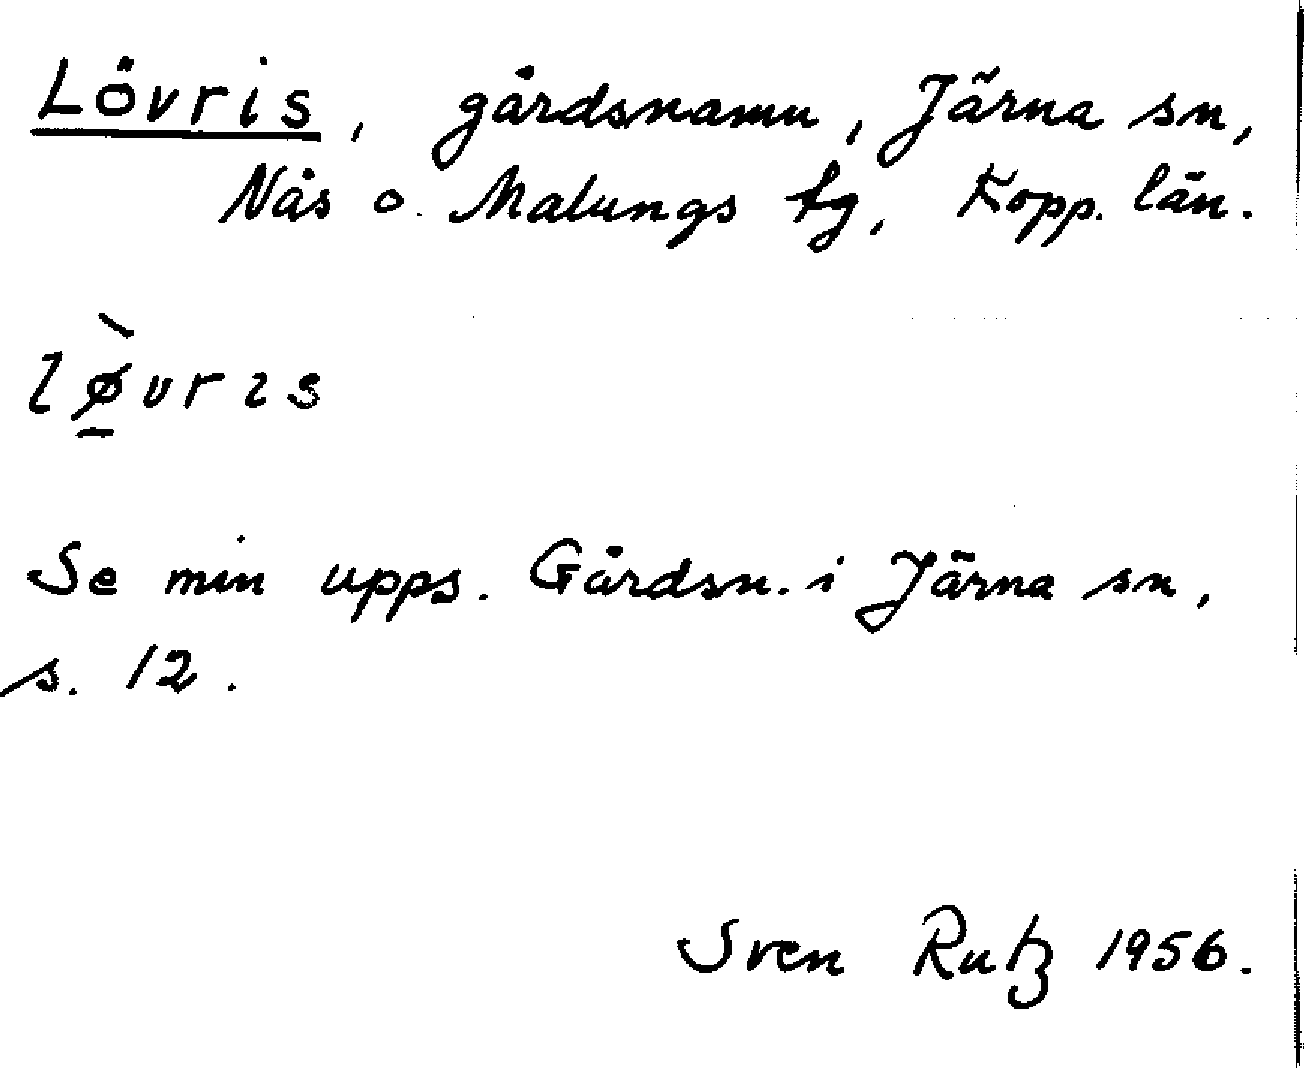 Lövris, gårdsnamn, Järna sn,
Nås o. Malungs tg, Kopp. län.
lø̱̀vrıs
Se min upps. Gårdsn. i Järna sn,
s. 12.
Sven Rutz 1956.